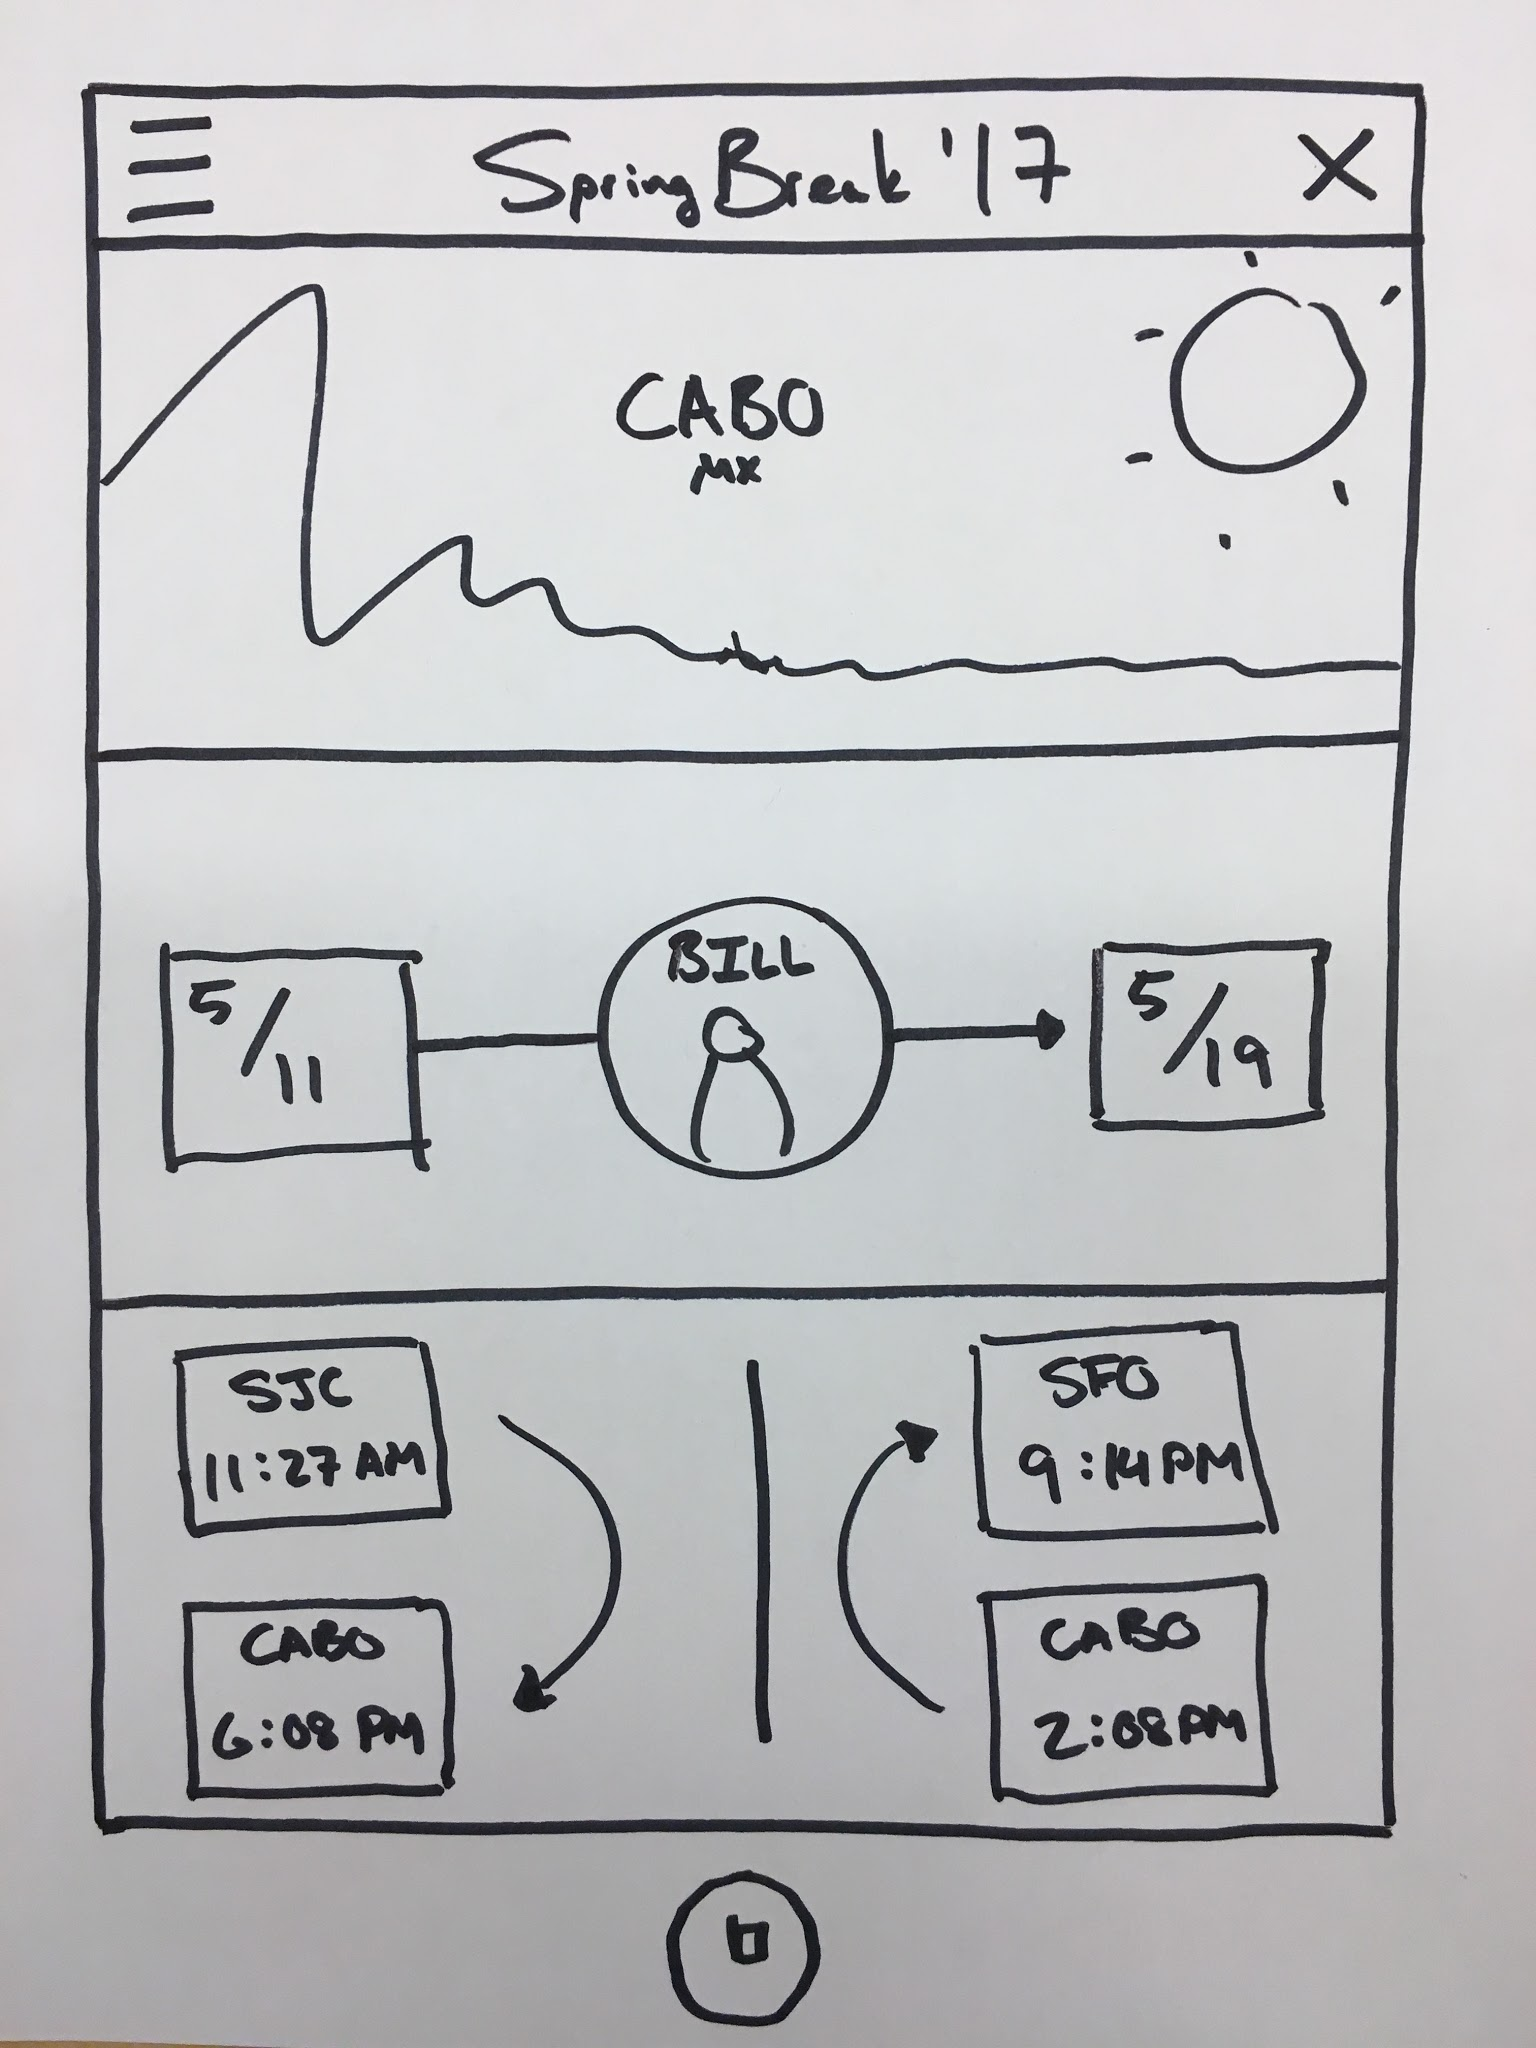 Spring Break '17
CABO
MX
5/11
BILL
5/19
SJC
11:27 AM
CABO
6:08 PM
SFO
9:14 PM
CABO
2:08 PM